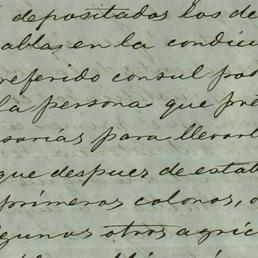 depositados los de
ablas, en la condici
referido consul pod
la persona que pre
sarias para llevarl
que despues de estab
primeros colonos, o
gunos otros agric